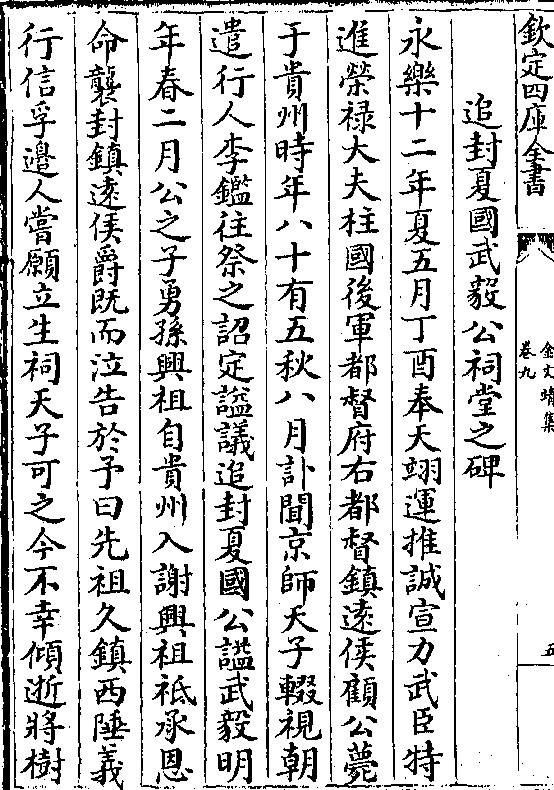 欽定四庫全書
金文靖集
卷九
五
追封夏國武毅公祠堂之碑
永樂十二年夏五月丁酉奉天翊運推誠宣力武臣特
進榮禄大夫柱國後軍都督府右都督鎮遠侯顧公薨
于貴州時年八十有五秋八月訃聞京師天子輟視朝
遣行人李鑑往祭之詔定謚議追封夏國公謚武毅明
年春二月公之子勇孫興祖自貴州入謝興祖祗承恩
命襲封鎮遠侯爵既而泣告於予曰先祖久鎮西陲義
行信孚邊人嘗願立生祠天子可之今不幸傾逝將樹